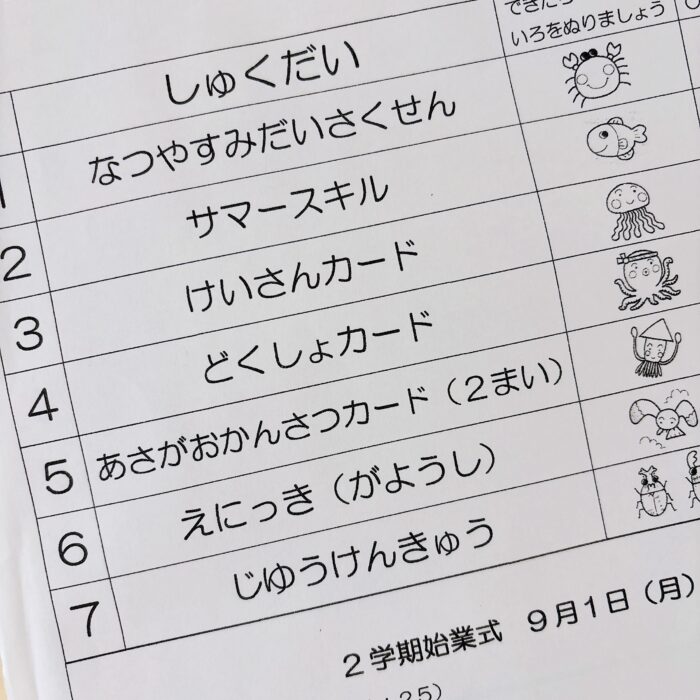 できたら
いろをぬりましょう
しゅくだい
1 なつやすみだいさくせん
2 サマースキル
3 けいさんカード
4 どくしょカード
5 あさがおかんさつカード（2まい）
6 えにっき（がようし）
7 じゆうけんきゅう
2学期始業式 9月1日（月）